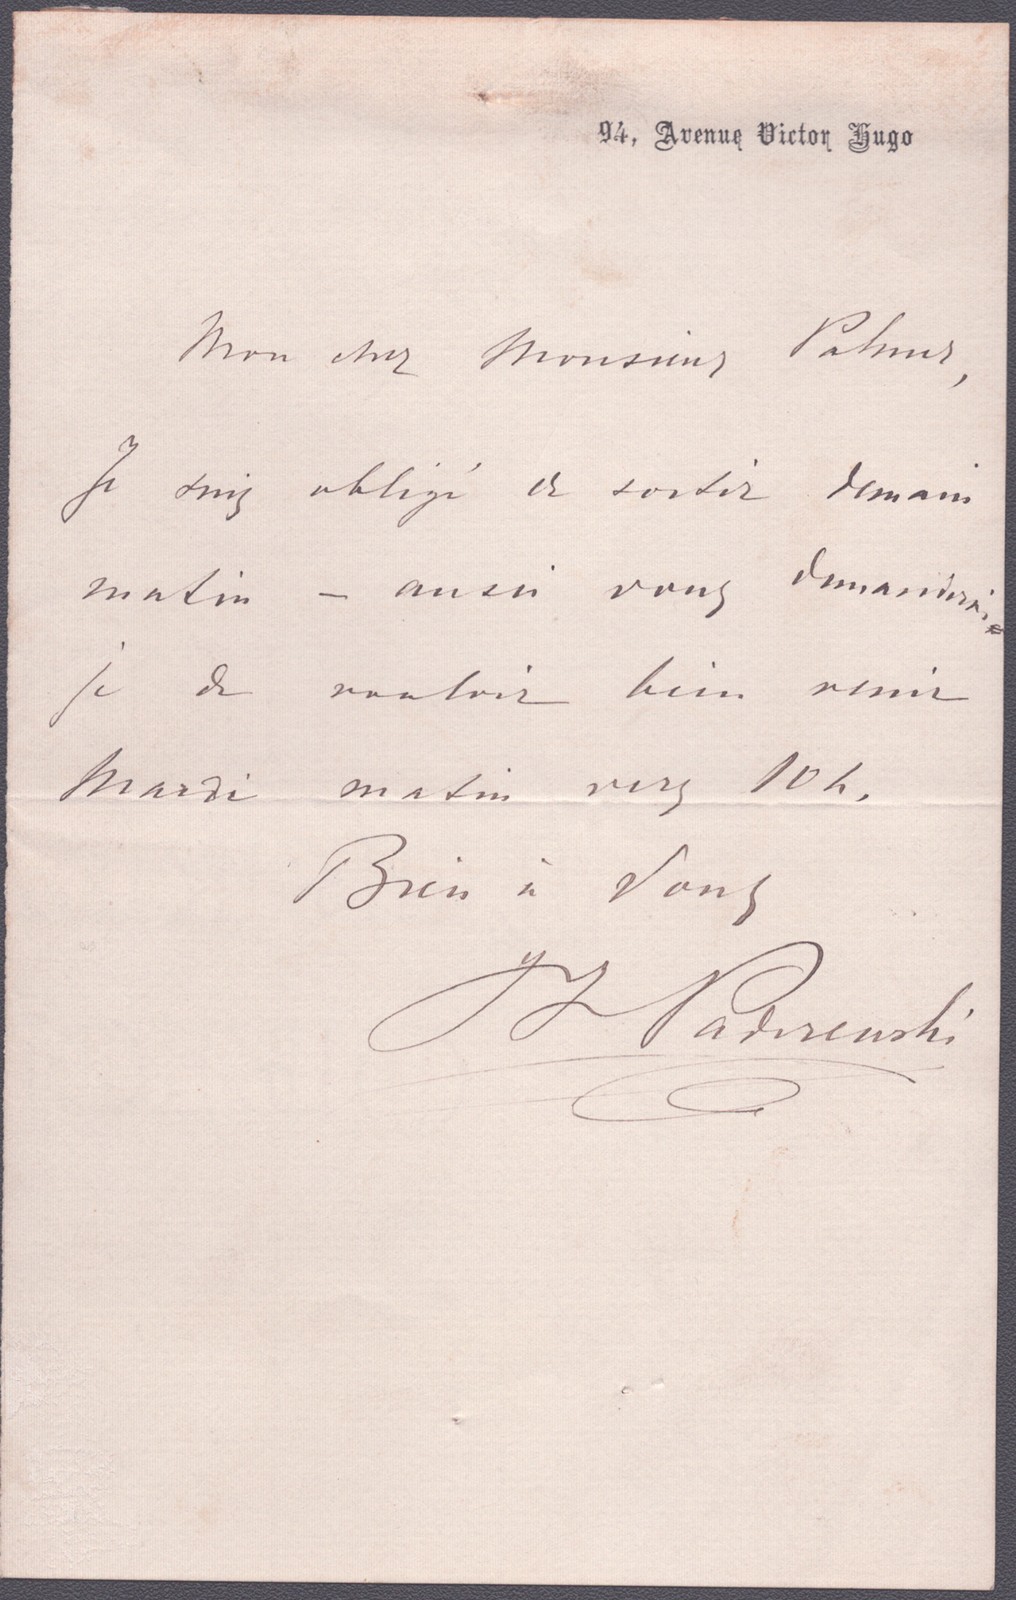 94, Avenue Victor Hugo
Mon cher Monsieur Palmer,
Je suis obligé de sortir demain
matin – aussi vous demanderai=
je de vouloir bien venir
Mardi matin vers 10 h.
Bien à Vous
IJ Paderewski